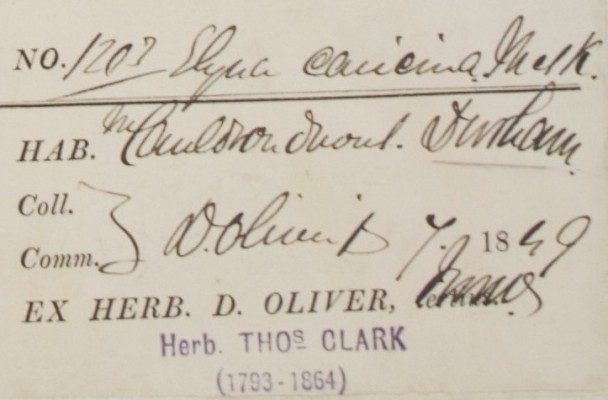 NO. 1207 Elyna caricina. M & K.
HAB. nr Cauldron Snout. Durham.
Coll.
Comm. } D. Oliver Jr 7. 1849
EX HERB. D. OLIVER,
Herb. THOS CLARK
(1793-1864)